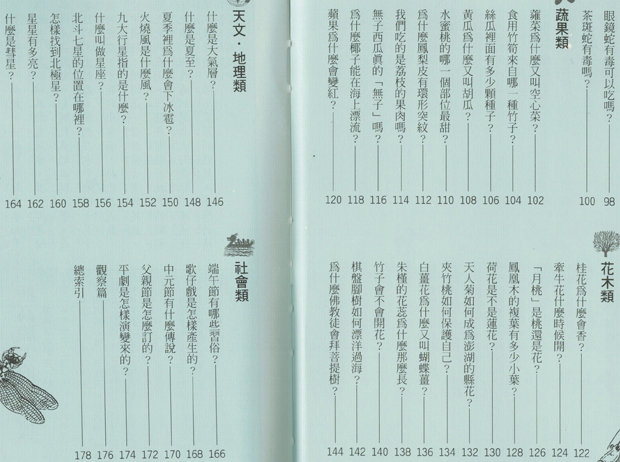 眼鏡蛇有毒可以吃嗎？ 98
茶斑蛇有毒嗎？ 100
蔬果類
蕹菜爲什麼又叫空心菜？ 102
食用竹筍來自哪一種竹子？ 104
絲瓜裡面有多少顆種子？ 106
黃瓜爲什麼又叫胡瓜？ 108
水蜜桃的哪一個部位最甜？ 110
爲什麼鳳梨皮有環形突紋？ 112
我們吃的是荔枝的果肉嗎？ 114
無子西瓜眞的「無子」嗎？ 116
爲什麼椰子能在海上漂流？ 118
蘋果爲什麼會變紅？ 120
花木類
桂花爲什麼會香？ 122
牽牛花什麼時候開？ 124
「月桃」是桃還是花？ 126
鳳凰木的複葉有多少小葉？ 128
荷花是不是蓮花？ 130
天人菊如何成爲澎湖的縣花？ 132
夾竹桃如何保護自己？ 134
白薑花爲什麼又叫蝴蝶薑？ 136
朱槿的花蕊爲什麼那麼長？ 138
竹子會不會開花？ 140
棋盤腳樹如何漂洋過海？ 142
爲什麼佛教徒會拜菩提樹？ 144
天文・地理類
什麼是大氣層？ 146
什麼是夏至？ 148
夏季裡爲什麼會下冰雹？ 150
火燒風是什麼風？ 152
九大行星指的是什麼？ 154
什麼叫做星座？ 156
北斗七星的位置在哪裡？ 158
怎樣找到北極星？ 160
星星有多亮？ 162
什麼是彗星？ 164
社會類
端午節有哪些習俗？ 166
歌仔戲是怎樣產生的？ 168
中元節有什麼傳說？ 170
父親節是怎麼訂的？ 172
平劇是怎樣演變來的？ 174
觀察篇 176
總索引 178